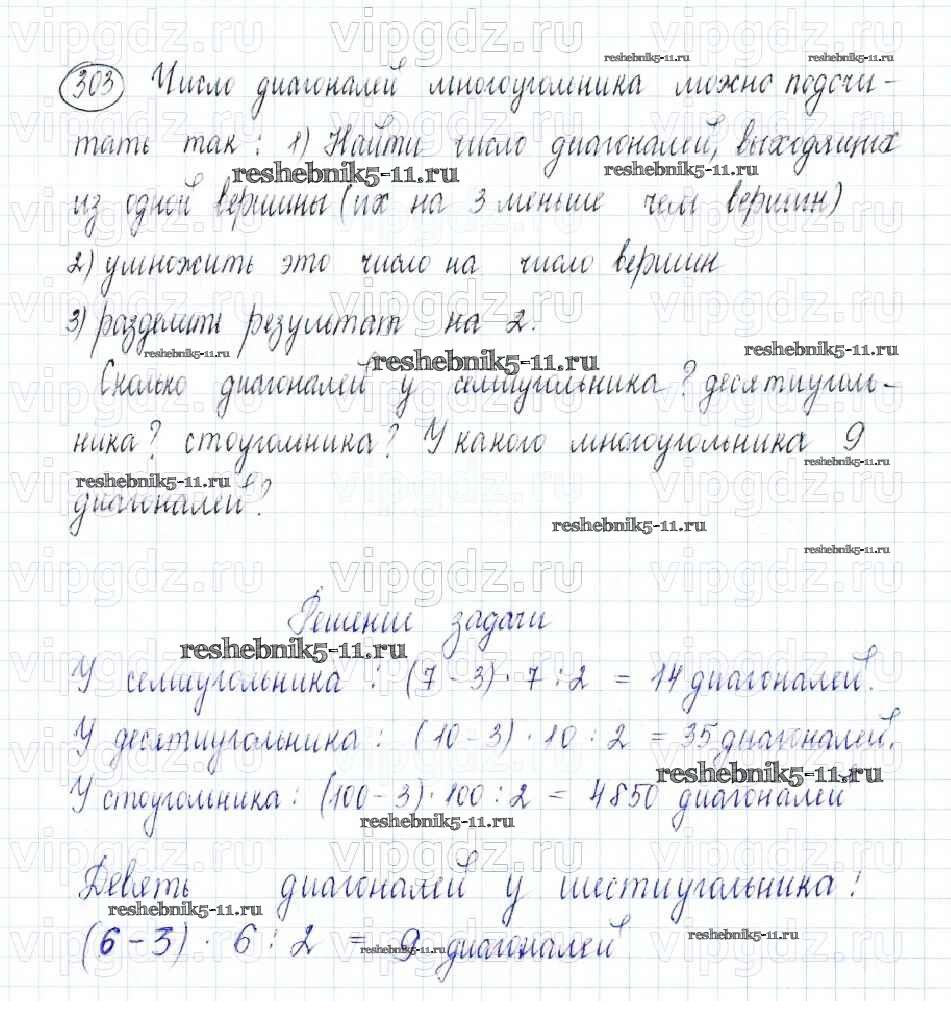 303 Число диагоналей многоугольника можно подсчи-
тать так: 1) Найти число диагоналей, выходящих
из одной вершины (их на 3 меньше чем вершин)
2) умножить это число на число вершин
3) разделить результат на 2.
Сколько диагоналей у семиугольника? десятиуголь-
ника? стоугольника? У какого многоугольника 9
диагоналей?
Решение задачи
У семиугольника : (7 - 3) · 7 : 2 = 14 диагоналей.
У десятиугольника : (10 - 3) · 10 : 2 = 35 диагоналей.
У стоугольника : (100 - 3) · 100 : 2 = 4850 диагоналей
Девять диагоналей у шестиугольника!
(6 - 3) · 6 : 2 = 9 диагоналей